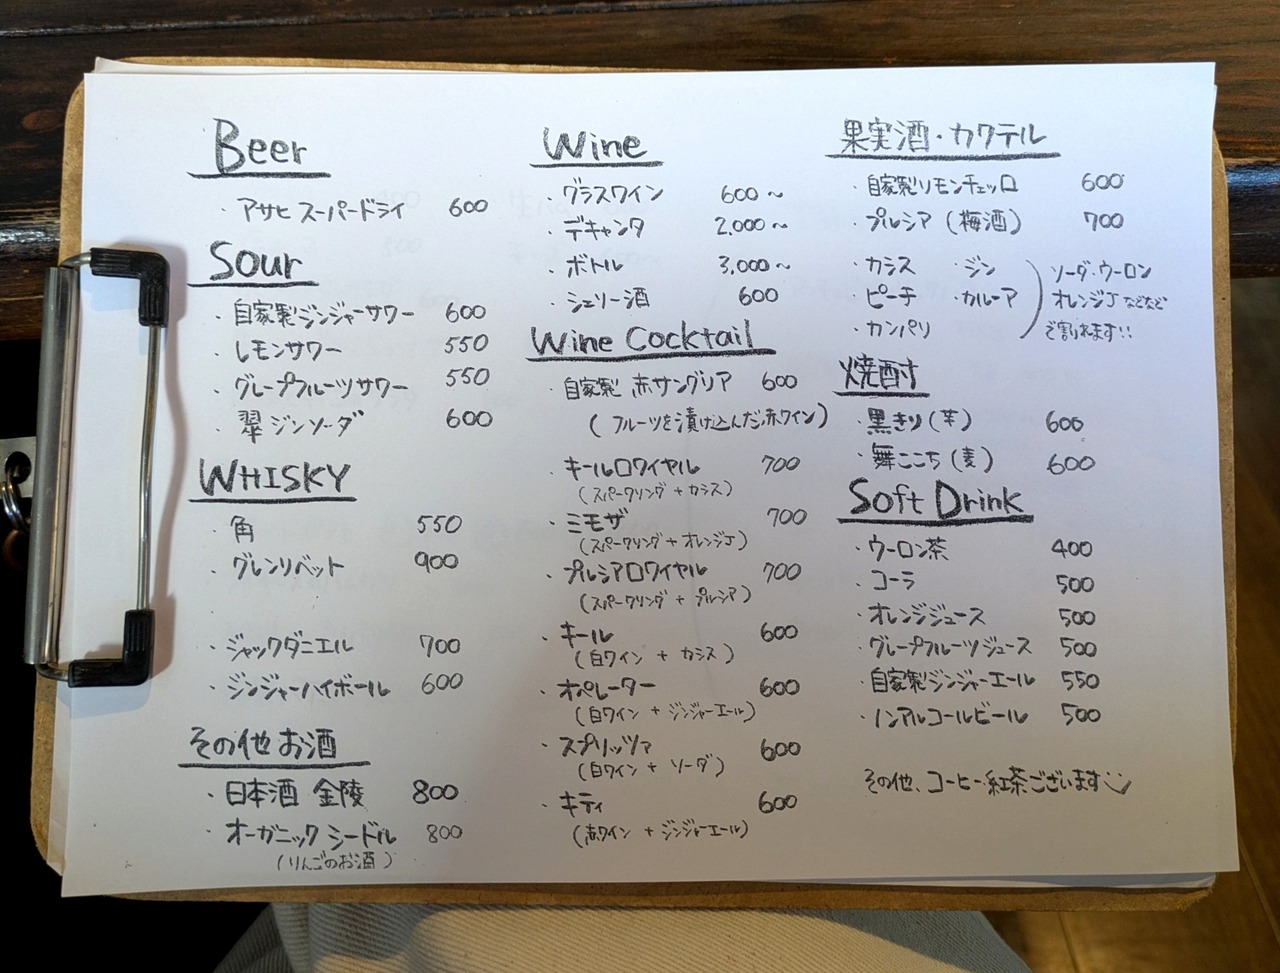 Beer
・アサヒ スーパードライ 600
Sour
・自家製ジンジャーサワー 600
・レモンサワー 550
・グレープフルーツサワー 550
・翠ジンソーダ 600
WHISKY
・角 550
・グレンリベット 900
・ジャックダニエル 700
・ジンジャーハイボール 600
その他お酒
・日本酒 金陵 800
・オーガニック シードル 800
(りんごのお酒)
Wine
・グラスワイン 600～
・デキャンタ 2,000～
・ボトル 3,000～
・シェリー酒 600
Wine Cocktail
・自家製 赤サングリア 600
(フルーツを漬け込んだ赤ワイン)
・キールロワイヤル 700
(スパークリング + カシス)
・ミモザ 700
(スパークリング + オレンジJ)
・プルシアロワイヤル 700
(スパークリング + プルシア)
・キール 600
(白ワイン + カシス)
・オペレーター 600
(白ワイン + ジンジャーエール)
・スプリッツァ 600
(白ワイン + ソーダ)
・キティ 600
(赤ワイン + ジンジャーエール)
果実酒・カクテル
・自家製リモンチェッロ 600
・プルシア (梅酒) 700
・カシス ・ジン
・ピーチ ・カルーア
・カンパリ
ソーダ・ウーロン
オレンジJなどなど
で割れます!!
焼酎
・黒きり(芋) 600
・舞ここち(麦) 600
Soft Drink
・ウーロン茶 400
・コーラ 500
・オレンジジュース 500
・グレープフルーツジュース 500
・自家製ジンジャーエール 550
・ノンアルコールビール 500
その他、コーヒー紅茶ございます